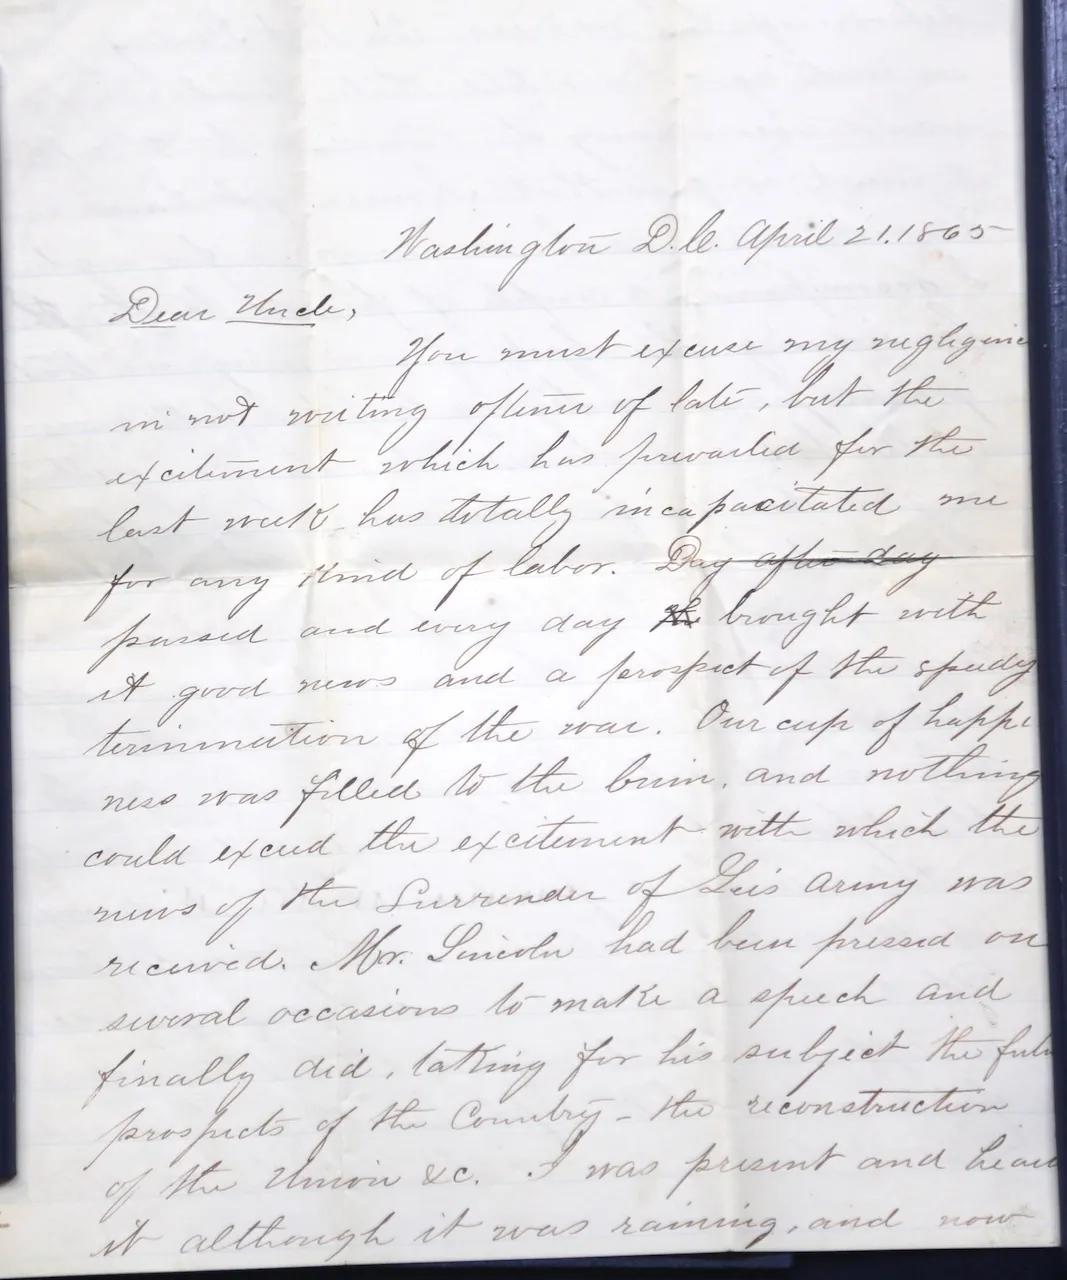 Washington D.C. April 21. 1865
Dear Uncle,
You must excuse my negligenc
in not writing oftener of late, but the
excitement which has prevailed for the
last week has totally incapacitated me
for any kind of labor. Day after day
passed and every day the brought with
it good news and a prospect of the speedy
termination of the war. Our cup of happi
ness was filled to the brim, and nothing
could exceed the excitement with which the
news of the Surrender of Lee's Army was
received. Mr. Lincoln had been pressed on
several occasions to make a speech and
finally did, taking for his subject the futu
prospects of the Country - the reconstruction
of the Union &c. I was present and hear
it although it was raining, and now